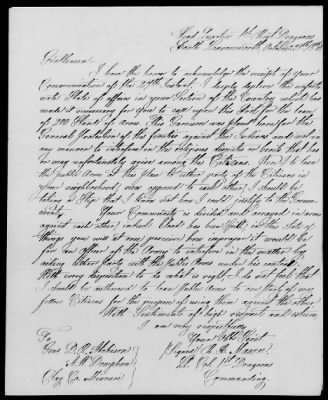 Head Quarters 1st Regt Dragoons
Fort Leavenworth, October
Gentlemen
I have the honor to acknowledge the receipt of your
Communication of the Instant, I deeply deplore the unfortu
nate State of affairs in your Section of the Country which has
made it necessary for you to call upon this Post for the loan
of 200 Stands of arms. This Garrison was placed here for the
General Protection of the frontier against the Indians and not in
any manner to interfere in the religious disputes or broils that has
or may unfortunately arise among the Citizens. Were I to loan
the public Arms at this place to either party of the Citizens in
your neighborhood now opposed to each other, I should be
taking a Step that I know not how I could justify to the Govern
ment. Your Community is divided and arrayed in arms
against each other, indeed blood has been spilt, in this state of
things you will at once perceive how improper it would be
for an officer of the Army to interfere in this matter by
aiding either Party with the public Arms under his control.
With every disposition to do what is right, I do not feel that
I should be authorised to loan public arms to one party of my
fellow Citizens for the purpose of using them against the other
With Sentiments of high respect and esteem
I am very respectfully
Your Obt. Servt
(Signed) R. B. Mason
Lt. Col. 1st Dragoons
Commanding.
To
Genl D. R. Atchison
A. W. Doniphan
Clay Co. Missouri